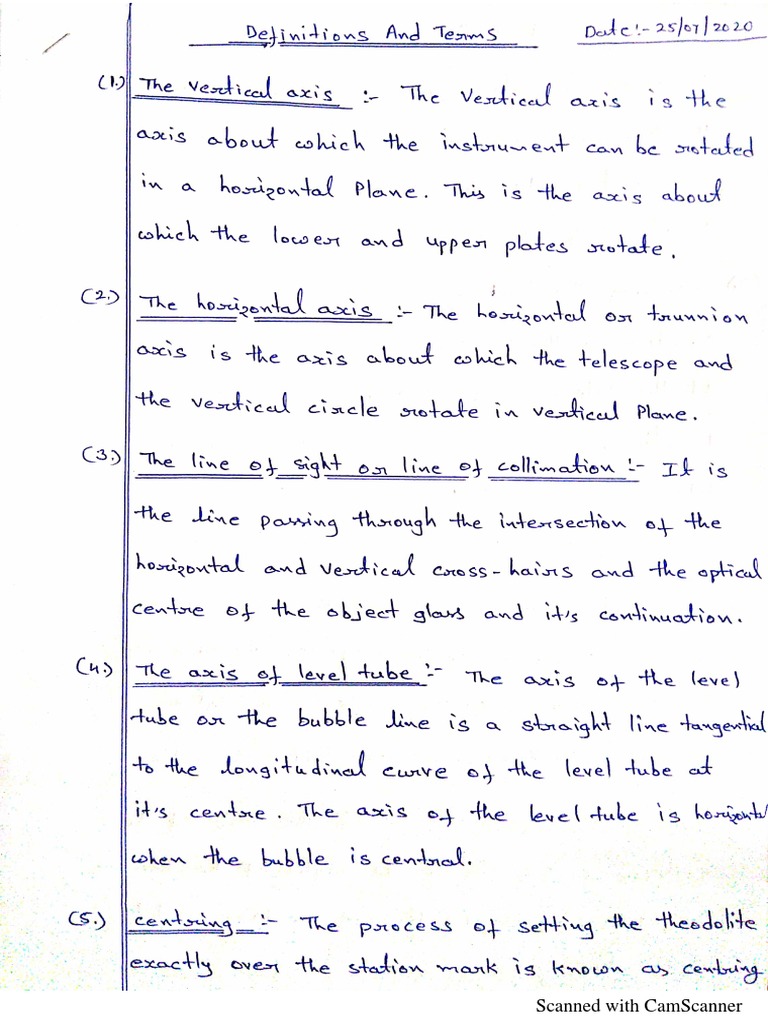 Definitions And Terms
Date:- 25/07/2020
(1.) The vertical axis :- The vertical axis is the
axis about which the instrument can be rotated
in a horizontal Plane. This is the axis about
which the lower and upper plates rotate.
(2.) The horizontal axis :- The horizontal or trunnion
axis is the axis about which the telescope and
the vertical circle rotate in vertical Plane.
(3.) The line of sight or line of collimation :- It is
the line passing through the intersection of the
horizontal and vertical cross-hairs and the optical
centre of the object glass and it's continuation.
(4.) The axis of level tube :- The axis of the level
tube or the bubble line is a straight line tangential
to the longitudinal curve of the level tube at
it's centre. The axis of the level tube is horizontal
when the bubble is central.
(5.) centring :- The process of setting the theodolite
exactly over the station mark is known as centring
Scanned with CamScanner